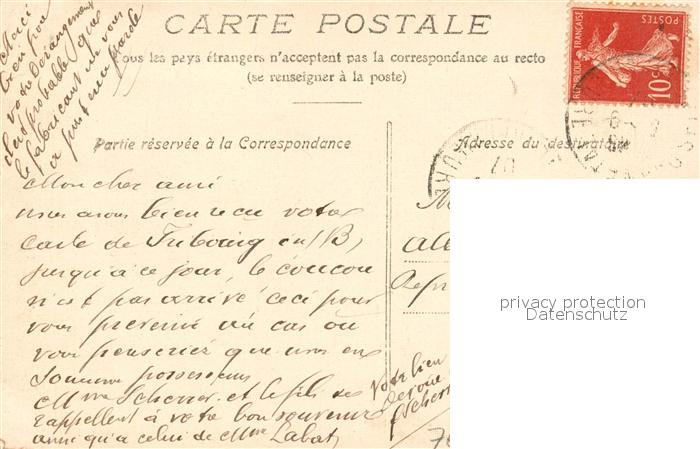 CARTE POSTALE
Tous les pays étrangers n'acceptent pas la correspondance au recto
(se renseigner à la poste)
Partie réservée à la Correspondance
Adresse du destinataire
RÉPUBLIQUE FRANÇAISE
POSTES
10c
Mon cher ami
nous avons bien reçu votre
carte de Fribourg in/B,
jusqu'à ce jour, le coucou
n'est pas arrivé ceci pour
vous prévenir au cas où
vous penseriez que nous en
sommes possesseurs
Mme Scherrer et le fils se
rappellent à votre bon souvenir
ainsi qu'à celui de Mme Labat
Votre bien
dévoué
Merci
bien pour
votre dérangement
c'est probable que
le fabricant ne vous
a pas
privacy protection
Datenschutz